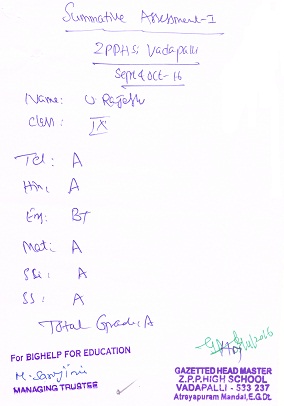 Summative Assessment-I
ZPPHS; Vadapalli
Sept & Oct-16
Name: U Rajesh
Class: IX
Tel: A
Hin: A
Eng: B+
Mat: A
SS: A
Total Grade: A
For BIGHELP FOR EDUCATION
MANAGING TRUSTEE
GAZETTED HEAD MASTER
Z.P.P.HIGH SCHOOL
VADAPALLI - 533 237
Atreyapuram Mandal, E.G.Dt.